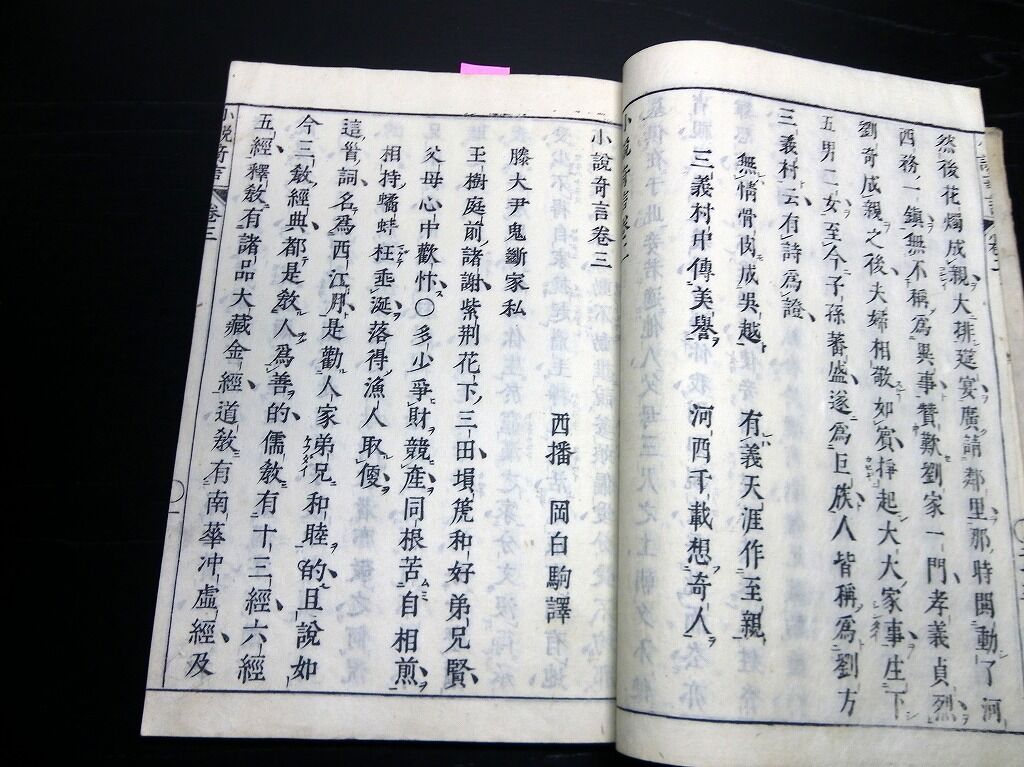 然後花燭成親大排筵宴廣請鄰里那時鬨動了河
西務一鎮無不稱爲異事贊歎劉家一門孝義貞烈
劉奇成親之後夫婦相敬如賓掙起大大家事生下
五男二女至今子孫蕃盛遂爲巨族人皆稱爲劉方
三義村云有詩爲證
無情骨肉成吳越 有義天涯作至親
三義村中傳美譽 河西千載想奇人
小說奇言卷三
西播 岡白駒譯
滕大尹鬼斷家私
玉樹庭前諸謝紫荊花下三田塤箎和好弟兄賢
父母心中歡忭〇多少爭財競產同根苦自相煎
相持鷸蚌枉垂涎落得漁人取便
這首詞名爲西江月是勸人家弟兄和睦的且說如
今三教經典都是教人爲善的儒教有十三經六經
五經釋教有諸品大藏金經道教有南華冲虛經及
小說奇言 卷三